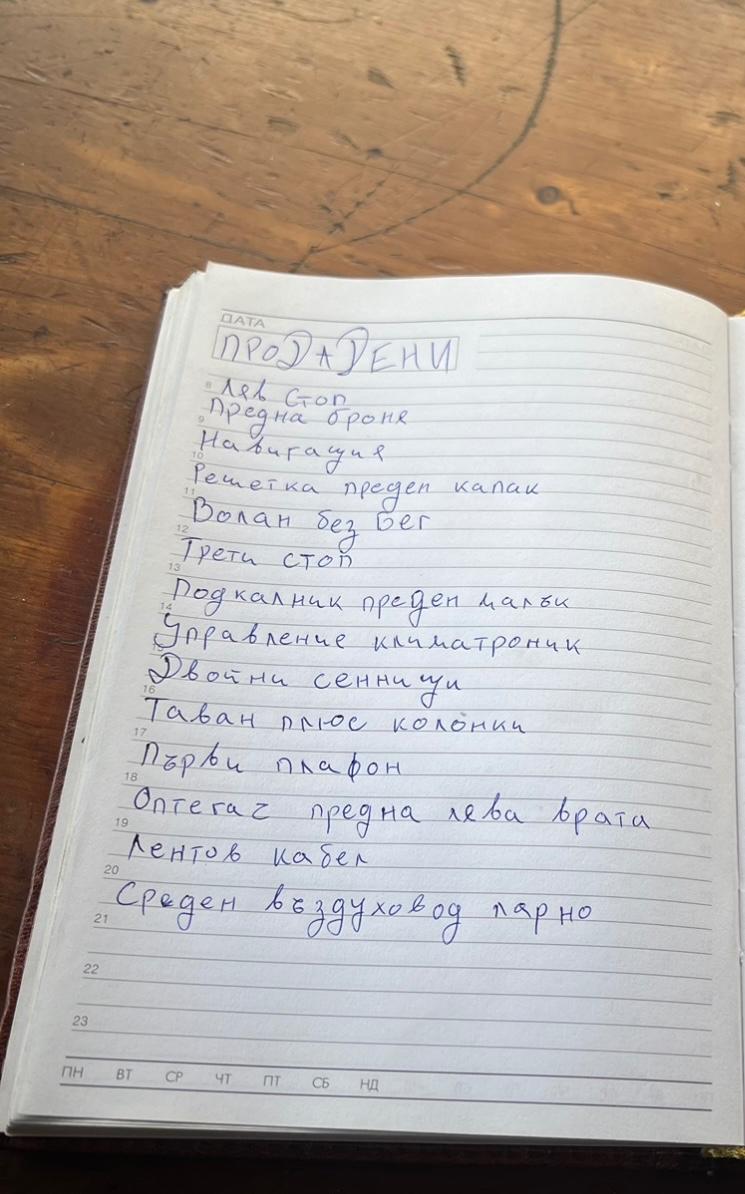 ДАТА
ПРОДАДЕНИ
8 Ляв стоп
Предна броня
9
Навигация
10
Решетка преден капак
11
Волан без бег
12
Трети стоп
13
Подкалник преден малък
14
Управление климатроник
15
Двойни сенници
16
Таван плюс колонки
17
Първи плафон
18
Оптегач предна лева врата
19
Лентов кабел
20
Среден въздуховод парно
21
22
23
ПН ВТ СР ЧТ ПТ СБ НД